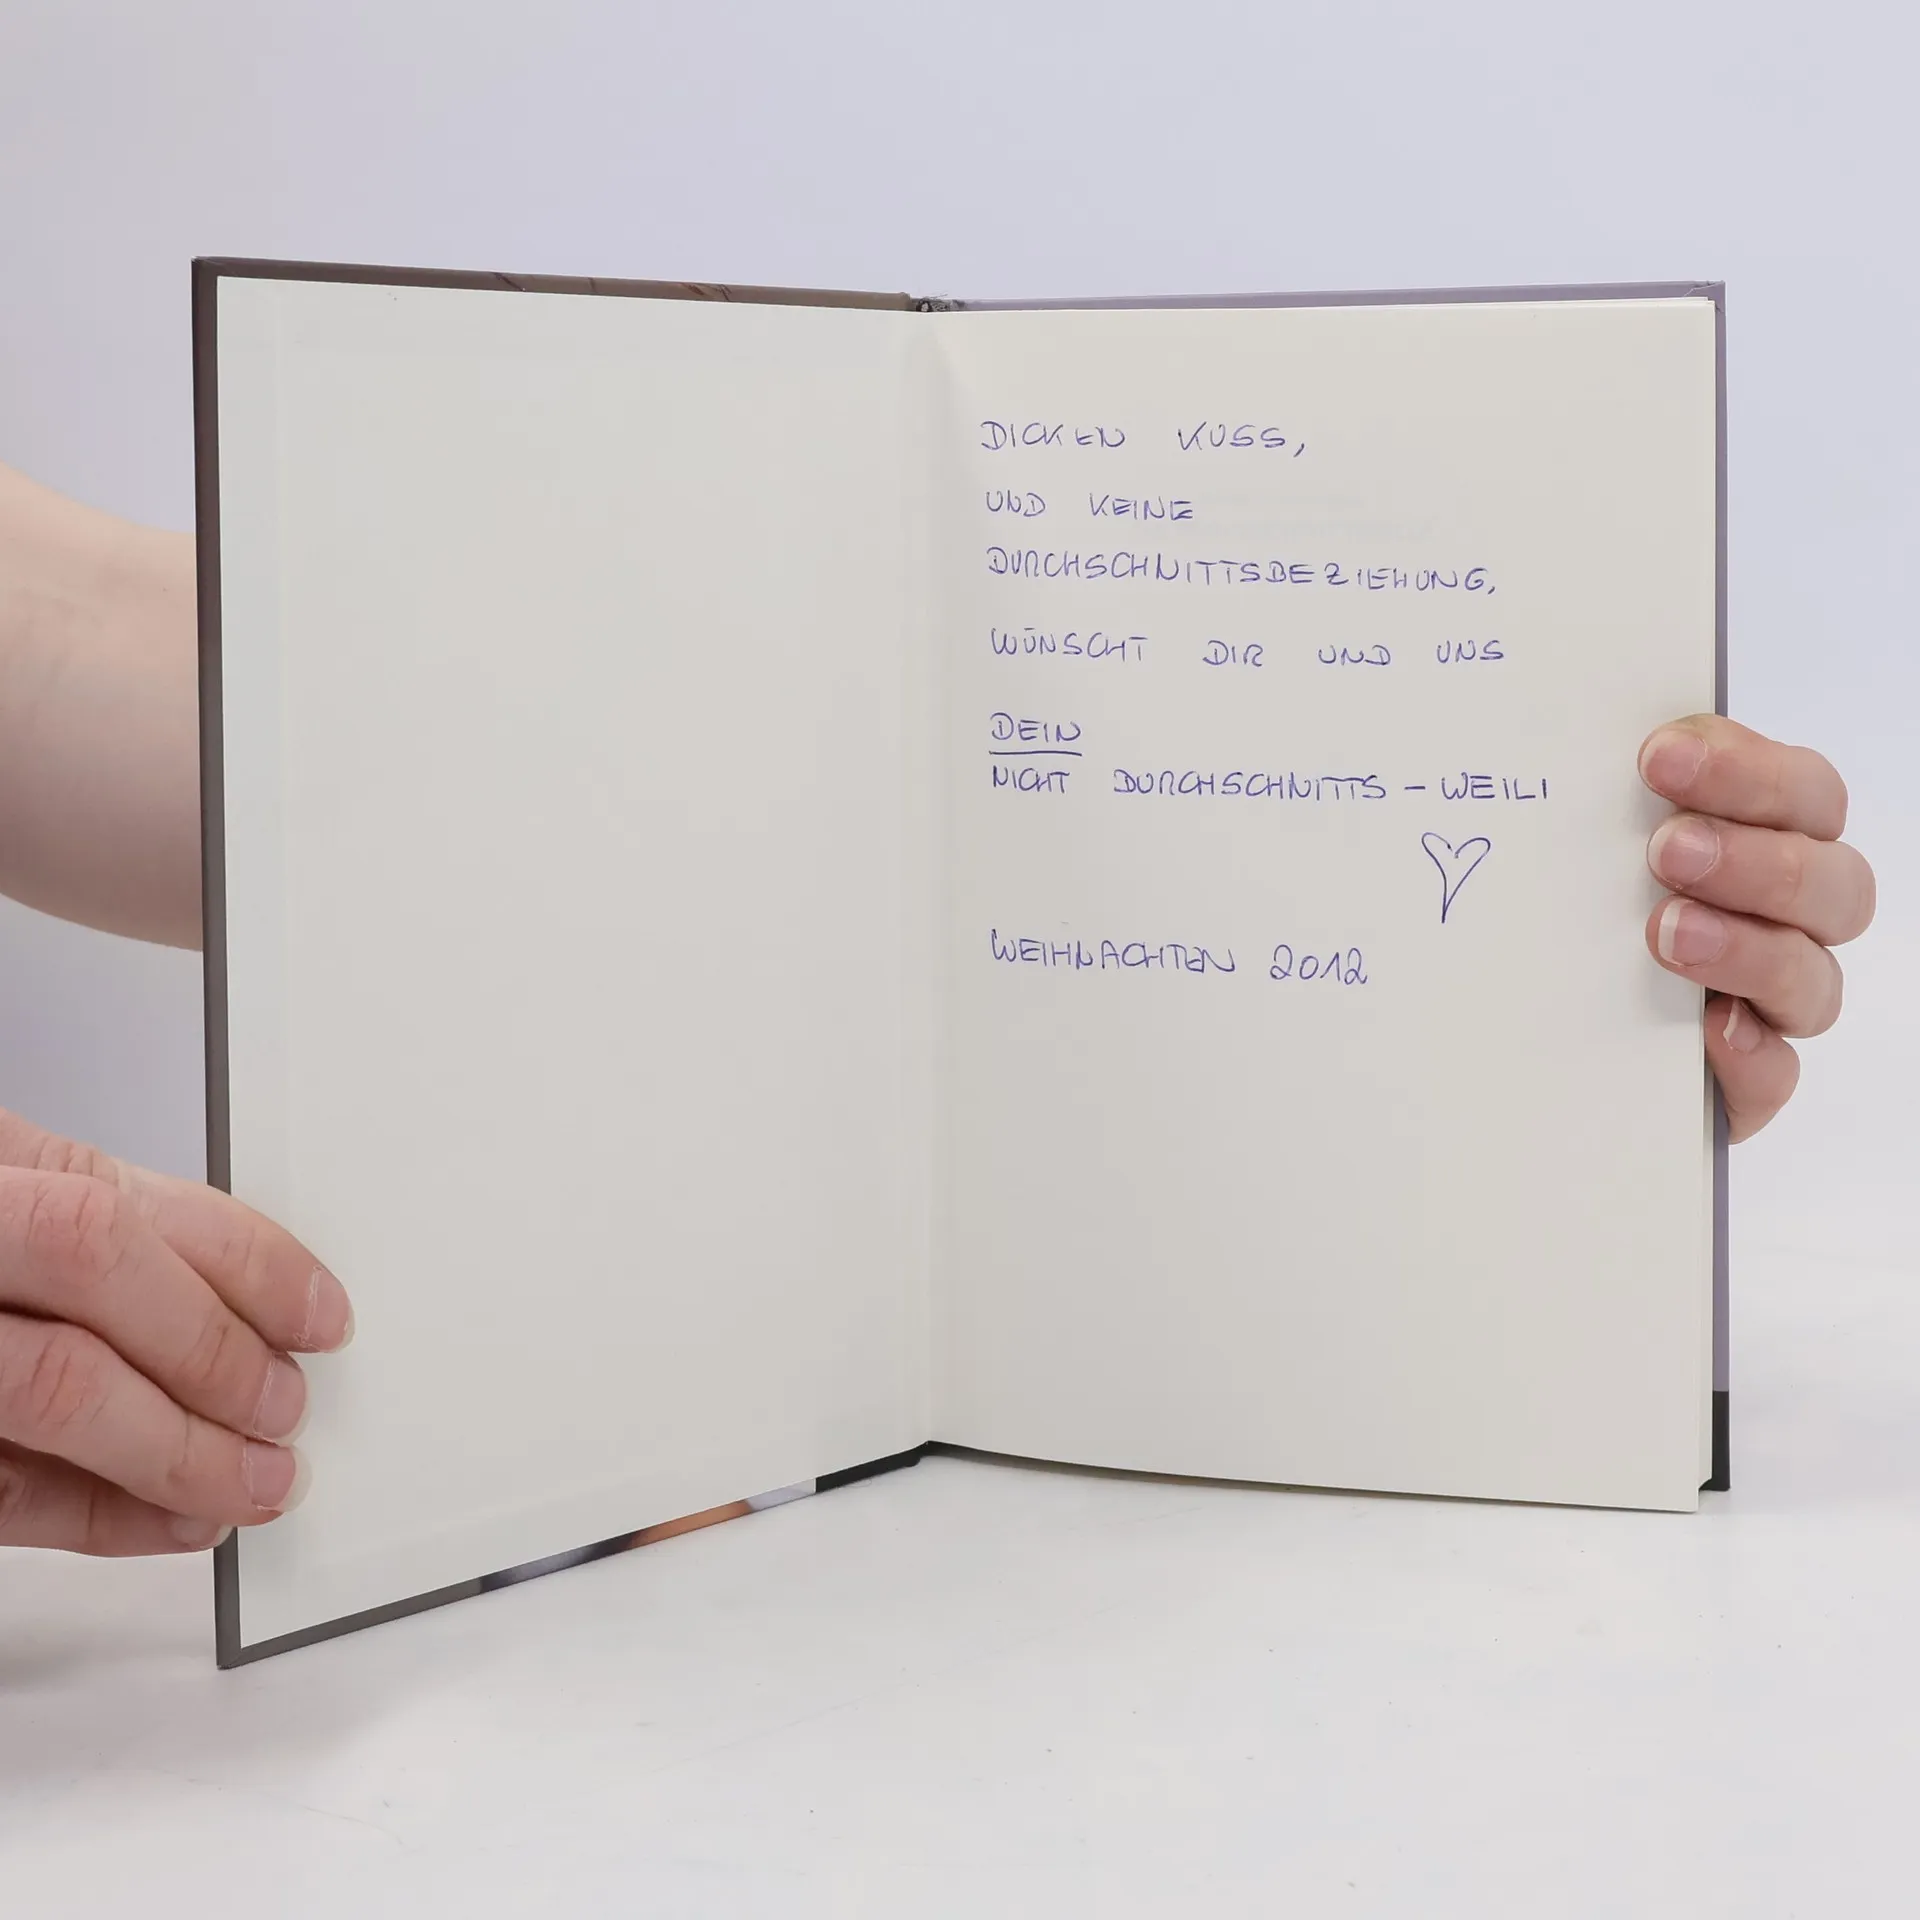 DICKEN KUSS,
UND KEINE
DURCHSCHNITTSBEZIEHUNG,
WÜNSCHT DIR UND UNS
DEIN
NICHT DURCHSCHNITTS - WEILI
WEIHNACHTEN 2012